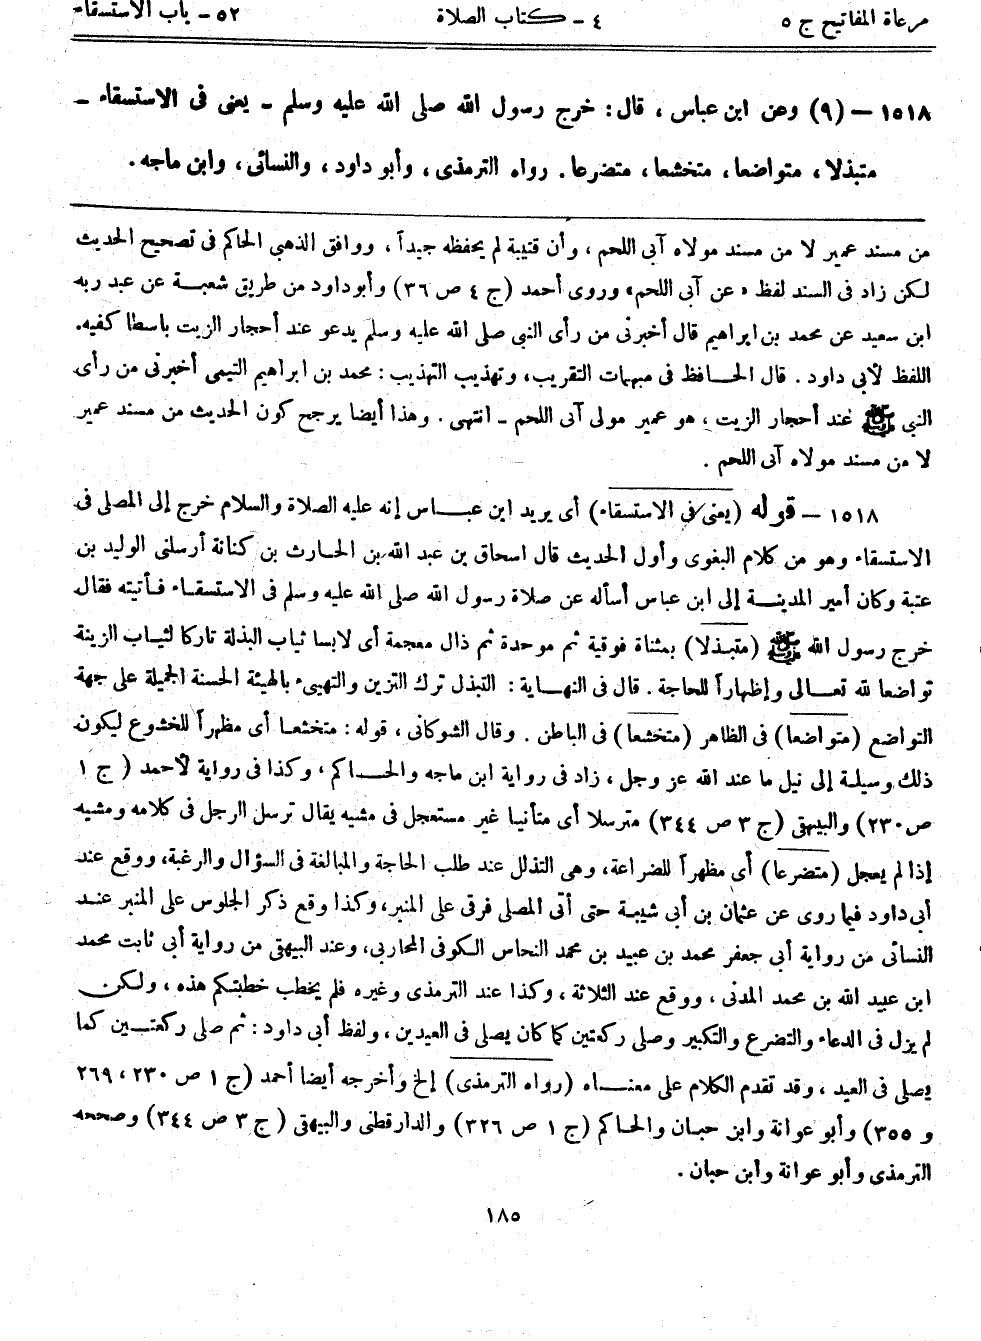 مرعاة المفاتيح ج ٥
٤ – كتاب الصلاة
٥٢ – باب الاستسقاء
١٥١٨ – (٩) وعن ابن عباس ، قال : خرج رسول الله صلى الله عليه وسلم – يعنى فى الاستسقاء –
متبذلا ، متواضعا ، متخشعا ، متضرعا . رواه الترمذى ، وأبو داود ، والنسائى ، وابن ماجه .
من مسند عمير لا من مسند مولاه آبى اللحم ، وأن قتيبة لم يحفظه جيداً ، ووافق الذهبى الحاكم فى تصحيح الحديث
لكن زاد فى السند لفظ « عن آبى اللحم » وروى أحمد (ج ٤ ص ٣٦) وأبوداود من طريق شعبة عن عبد ربه
ابن سعيد عن محمد بن ابراهيم قال أخبرنى من رأى النبى صلى الله عليه وسلم يدعو عند أحجار الزيت باسطا كفيه.
اللفظ لأبى داود . قال الحافظ فى مبهمات التقريب ، وتهذيب التهذيب : محمد بن ابراهيم التيمى أخبرنى من رأى
النبى ﷺ عند أحجار الزيت ، هو عمير مولى آبى اللحم – انتهى . وهذا أيضا يرجح كون الحديث من مسند عمير
لا من مسند مولاه آبى اللحم .
١٥١٨ – قوله (يعنى فى الاستسقاء) أى يريد ابن عباس إنه عليه الصلاة والسلام خرج إلى المصلى فى
الاستسقاء وهو من كلام البغوى وأول الحديث قال اسحاق بن عبد الله بن الحارث بن كنانة أرسلنى الوليد بن
عتبة وكان أمير المدينة إلى ابن عباس أسأله عن صلاة رسول الله صلى الله عليه وسلم فى الاستسقاء فأتيته فقال
خرج رسول الله ﷺ (متبذلا) بمثناة فوقية ثم موحدة ثم ذال معجمة أى لابسا ثياب البذلة تاركا لثياب الزينة
تواضعا لله تعالى وإظهاراً للحاجة . قال فى النهاية : التبذل ترك التزين والتهيىء بالهيئة الحسنة الجميلة على جهة
التواضع (متواضعا) فى الظاهر (متخشعا) فى الباطن . وقال الشوكانى ، قوله : متخشعا أى مظهراً للخشوع ليكون
ذلك وسيلة إلى نيل ما عند الله عز وجل ، زاد فى رواية ابن ماجه والحاكم ، وكذا فى رواية لأحمد ( ج ١
ص ٢٣٠) والبيهقى (ج ٣ ص ٣٤٤) مترسلا أى متأنيا غير مستعجل فى مشيه يقال ترسل الرجل فى كلامه ومشيه
إذا لم يعجل (متضرعا) أى مظهراً للضراعة ، وهى التذلل عند طلب الحاجة والمبالغة فى السؤال والرغبة، ووقع عند
أبى داود فيما روى عن عثمان بن أبى شيبة حتى أتى المصلى فرقى على المنبر، وكذا وقع ذكر الجلوس على المنبر عند
النسائى من رواية أبى جعفر محمد بن عبيد بن محمد النحاس الكوفى المحاربى، وعند البيهقى من رواية أبى ثابت محمد
ابن عبيد الله بن محمد المدنى ، ووقع عند الثلاثة ، وكذا عند الترمذى وغيره فلم يخطب خطبتكم هذه ، ولكن
لم يزل فى الدعاء والتضرع والتكبير وصلى ركعتين كما كان يصلى فى العيدين ، ولفظ أبى داود : ثم صلى ركعتين كما
يصلى فى العيد ، وقد تقدم الكلام على معناه (رواه الترمذى) إلخ وأخرجه أيضا أحمد (ج ١ ص ٢٣٠ ، ٢٦٩
و ٣٥٥) وأبو عوانة وابن حبان والحاكم (ج ١ ص ٣٢٦) والدارقطنى والبيهقى (ج ٣ ص ٣٤٤) وصححه
الترمذى وأبو عوانة وابن حبان .
١٨٥